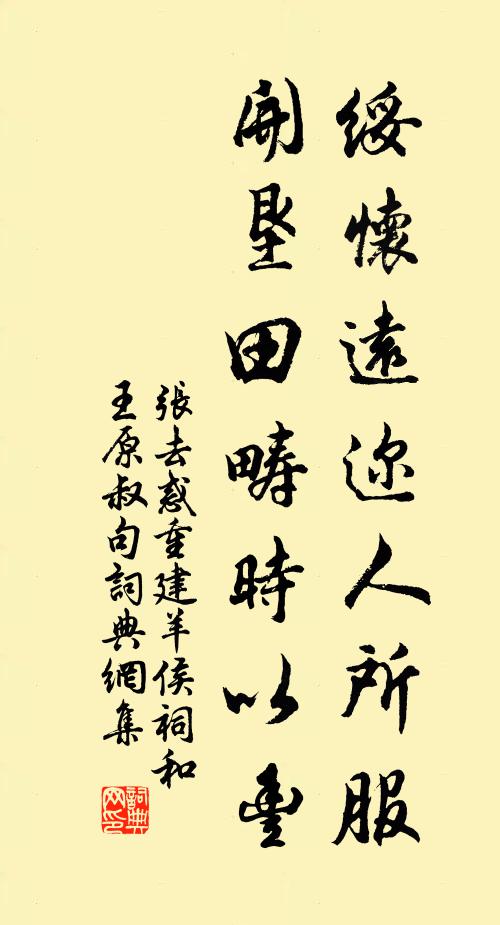 綏懷遠迩人所服
開墾田疇時以豊
張去惑重建羊侯祠和
王原叔句詞典網集
詞典
网印